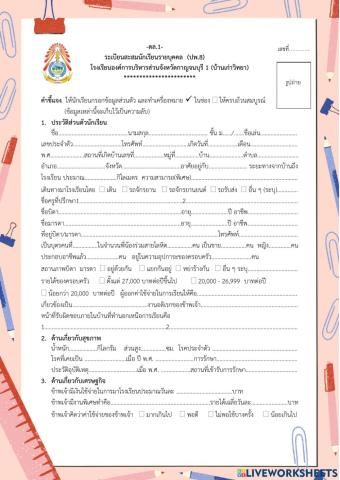 -ดล.1-
ระเบียนสะสมนักเรียนรายบุคคล (ปพ.8)
เลขที่..............
โรงเรียนองค์การบริหารส่วนจังหวัดกาญจนบุรี 1 (บ้านเก่าวิทยา)
***********************
รูปถ่าย
คำชี้แจง ให้นักเรียนกรอกข้อมูลส่วนตัว และทำเครื่องหมาย ✓ ในช่อง ☐ ให้ครบถ้วนสมบูรณ์
(ข้อมูลเหล่านี้จะเก็บไว้เป็นความลับ)
1. ประวัติส่วนตัวนักเรียน
ชื่อ..............................นามสกุล..............................ชั้น ม...../.....ชื่อเล่น..............
เลขประจำตัว....................โทรศัพท์....................เกิดวันที่..............เดือน..............
พ.ศ..............สถานที่เกิดบ้านเลขที่..............หมู่ที่..............บ้าน..............ตำบล..............
อำเภอ....................จังหวัด....................อาศัยอยู่กับ.................... ระยะทางจากบ้านถึง
โรงเรียน ประมาณ..............กิโลเมตร ความสามารถ(พิเศษ)..............................
เดินทางมาโรงเรียนโดย ☐ เดิน ☐ รถจักรยาน ☐ รถจักรยานยนต์ ☐ รถรับส่ง ☐ อื่น ๆ (ระบุ)..............
ชื่อครูที่ปรึกษา1..............................2..............................
ชื่อบิดา..............................อายุ..............ปี อาชีพ..............
ชื่อมารดา..............................อายุ..............ปี อาชีพ..............
ที่อยู่บิดา/มารดา..............................โทรศัพท์..............
เป็นบุตรคนที่..............ในจำนวนพี่น้องร่วมสายโลหิต..............คน เป็นชาย..............คน หญิง..............คน
ประกอบอาชีพแล้ว..............คน อยู่ในความอุปการะของครอบครัว..............คน
สถานภาพบิดา มารดา ☐ อยู่ด้วยกัน ☐ แยกกันอยู่ ☐ หย่าร้างกัน ☐ อื่น ๆ ระบุ..............
รายได้ของครอบครัว ☐ ตั้งแต่ 27,000 บาทต่อปีขึ้นไป ☐ 20,000 - 26,999 บาทต่อปี
☐ น้อยกว่า 20,000 บาทต่อปี ผู้ออกค่าใช้จ่ายในการเรียนให้คือ..............
เกี่ยวข้องเป็น..............................งานอดิเรกของข้าพเจ้า..............................
หน้าที่รับผิดชอบภายในบ้านที่ทำนอกเหนือการเรียนคือ
1..............................2..............................
2. ด้านเกี่ยวกับสุขภาพ
น้ำหนัก..............กิโลกรัม ส่วนสูง..............ซม. โรคประจำตัว ..............
โรคที่เคยเป็น ....................เมื่อปี พ.ศ. ....................การรักษา....................
ประวัติอุบัติเหตุ....................เมื่อ พ.ศ. ....................สถานที่เข้ารับการรักษา....................
3. ด้านเกี่ยวกับเศรษฐกิจ
ข้าพเจ้ามีเงินใช้จ่ายในการมาโรงเรียนประมาณวันละ ..............บาท
ข้าพเจ้ามีงานพิเศษทำคือ..............................รายได้เฉลี่ยวันละ..............บาท
ข้าพเจ้าคิดว่าค่าใช้จ่ายของข้าพเจ้า ☐ มากเกินไป ☐ พอดี ☐ ไม่พอใช้บางครั้ง ☐ น้อยเกินไป
LIVEWORKSHEETS